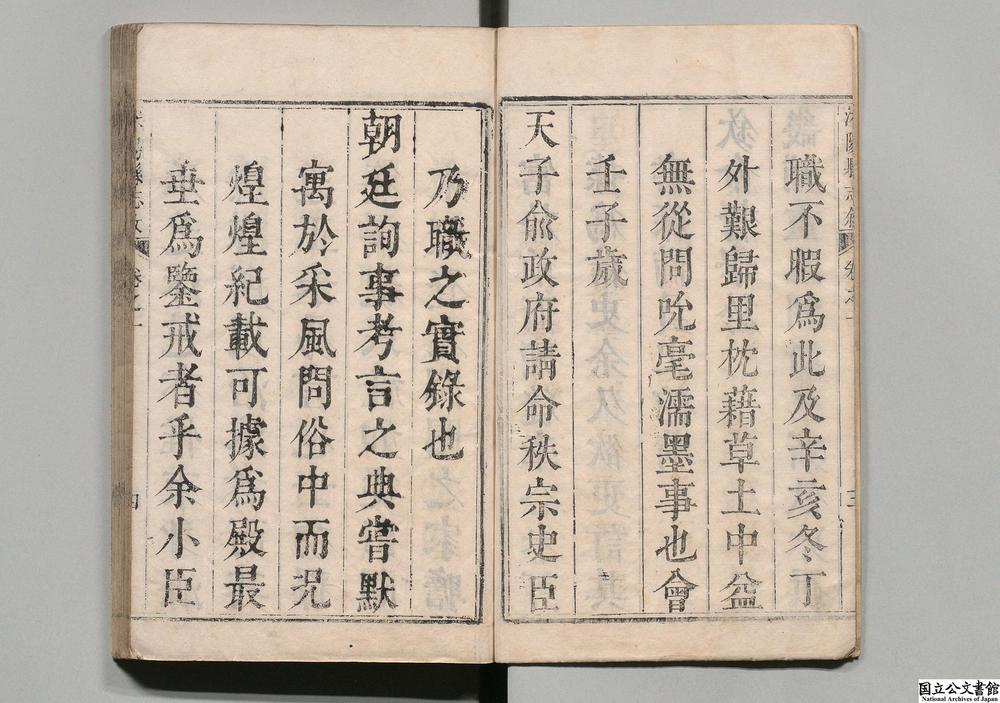 職不暇爲此及辛亥冬丁
外艱歸里枕藉草土中益
無從問吮毫濡墨事也會
壬子歲
天子俞政府請命秩宗史臣
乃職之實錄也
朝廷詢事考言之典嘗默
寓於采風問俗中而况
煌煌紀載可據爲殿最
垂爲鑒戒者乎余小臣
四
国立公文書館
National Archives of Japan